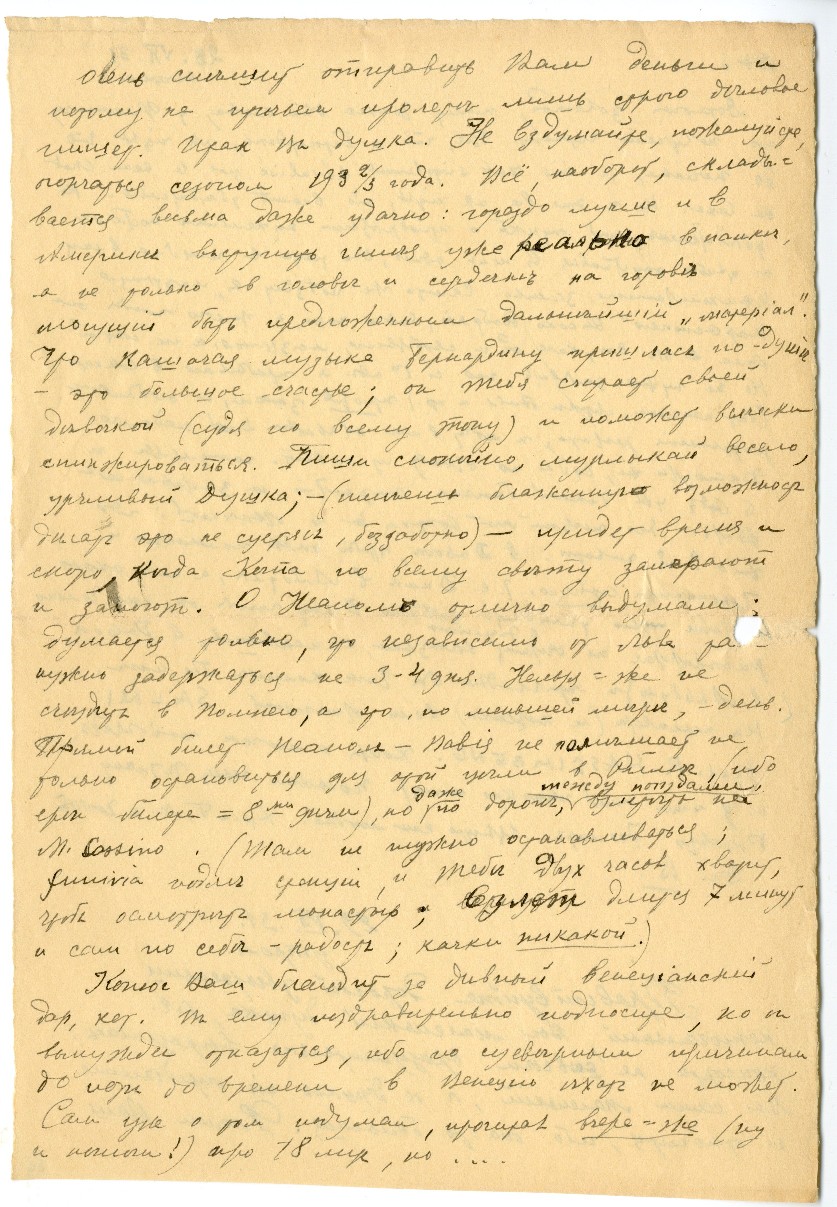 очень спешит отправить Вам деньги и
потому не прочьем пролерть лишь строго деловое
пишет. Ирак Вы душка. Не вздумайте, пожалуйста,
огорчаться сезоном 193 2/3 года. Всё, наоборот, склады=
вается весьма даже удачно: гораздо лучше и в
Америкѣ выступить имѣя уже реально в папкѣ,
а не только в головѣ и сердечкѣ на готовѣ
могущий быть предложенным дальнѣйший „матеріал".
Что Кашачая музыка Бернардину пришлась по-душѣ
— это большое счастье; он Тебя считает своей
дѣвочкой (судя по всему тону) и поможет всячески
Пиши спокойно, мурлыкай весело,
урчливый Душка; — (имѣешь блаженную возможность
дѣлать это не суетясь, беззаботно) — придет время и
скоро, когда Кота по всему свѣту заиграют
и запоют. О Неаполѣ отлично выдумали;
думается только, что независимо от Льва там
нужно задержаться не 3-4 дня. Нельзя=же не
съездить в Помпею, а это, по меньшей мѣрѣ, — день.
Прямой билет Неаполь — Павія не помѣшает не
только остановиться для этой цѣли в Римѣ, (ибо
срок билета = 8 ми дням), но даже по дорогѣ, между поѣздами, взлетѣть на
M. Cassino. (Там не нужно останавливаться;
funivia подлѣ станціи, и Тебѣ двух часов хватит,
чтобы осмотрѣть монастырь; взлет длится 7 минут
и сам по себѣ — радость; качки никакой.)
Котюс Ваш благодит за дивный венеціанскій
дар, кот. Вы ему поздравительно подносите, но он
вынужден отказаться, ибо по суевѣрным причинам
до поры до времени в Венецію ѣхать не может.
Сам уже о том подумал, прочитав вчера=же (ну
и ноготки!) про 18 лир, но ....